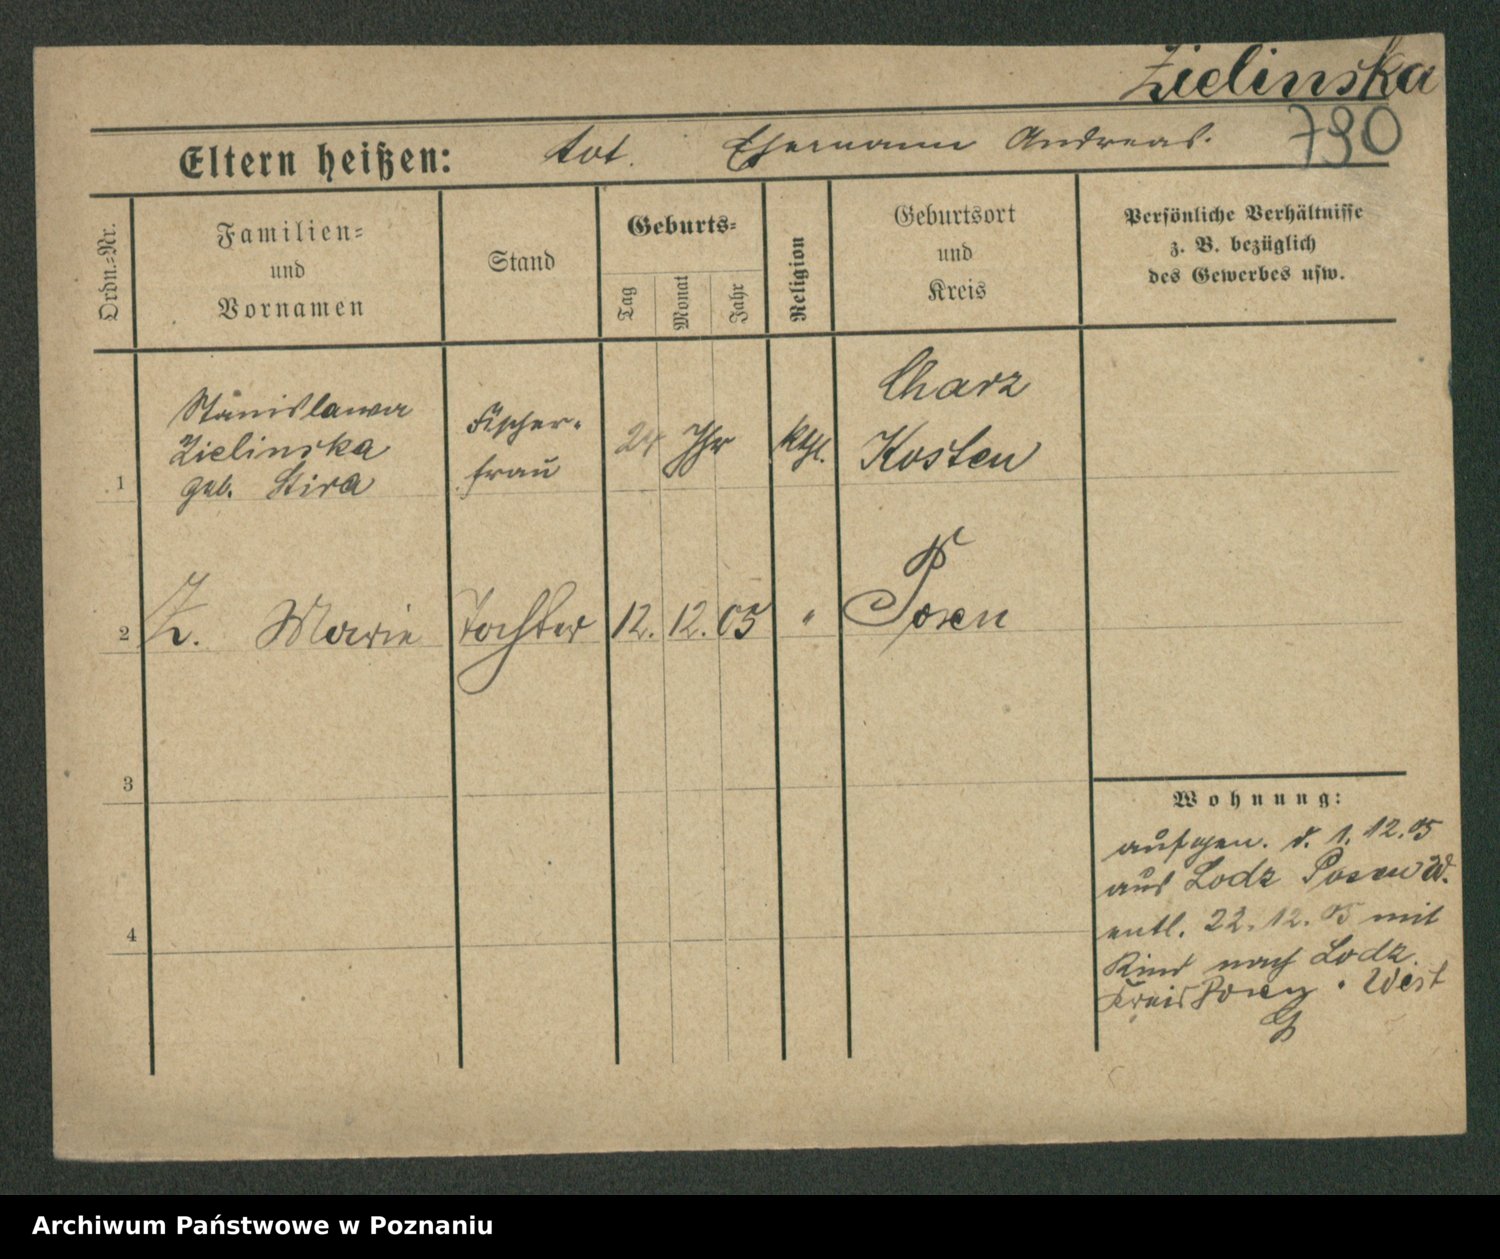 Zielinska
790
Eltern heißen: tot. Ehemann Andreas.
Ordn.-Nr.
Familien-
und
Vornamen
Stand
Geburts-
Tag
Monat
Jahr
Religion
Geburtsort
und
Kreis
Persönliche Verhältnisse
z. B. bezüglich
des Gewerbes usw.
1
Stanislawa
Zielinska
geb. Skira
Fischer-
frau
24 Jhr
kthl.
Charz
Kosten
2
Z. Marie
Tochter
12. 12. 05
"
Posen
3
4
Wohnung:
aufgen. d. 1. 12. 05
aus Lodz Posen W.
entl. 22. 12. 05 mit
Kind nach Lodz.
Kreis Posen West
Archiwum Państwowe w Poznaniu